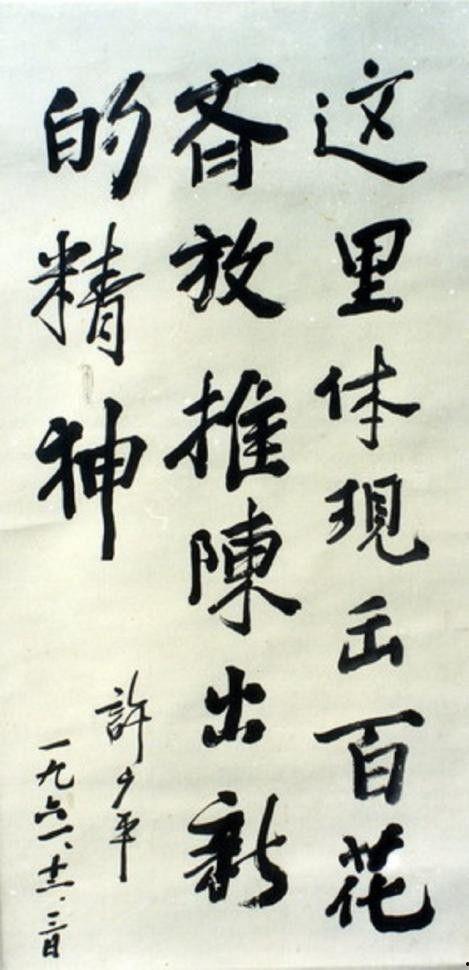 这里体現出百花
斉放推陳出新
的精神
許广平
一九六一、十二.三日